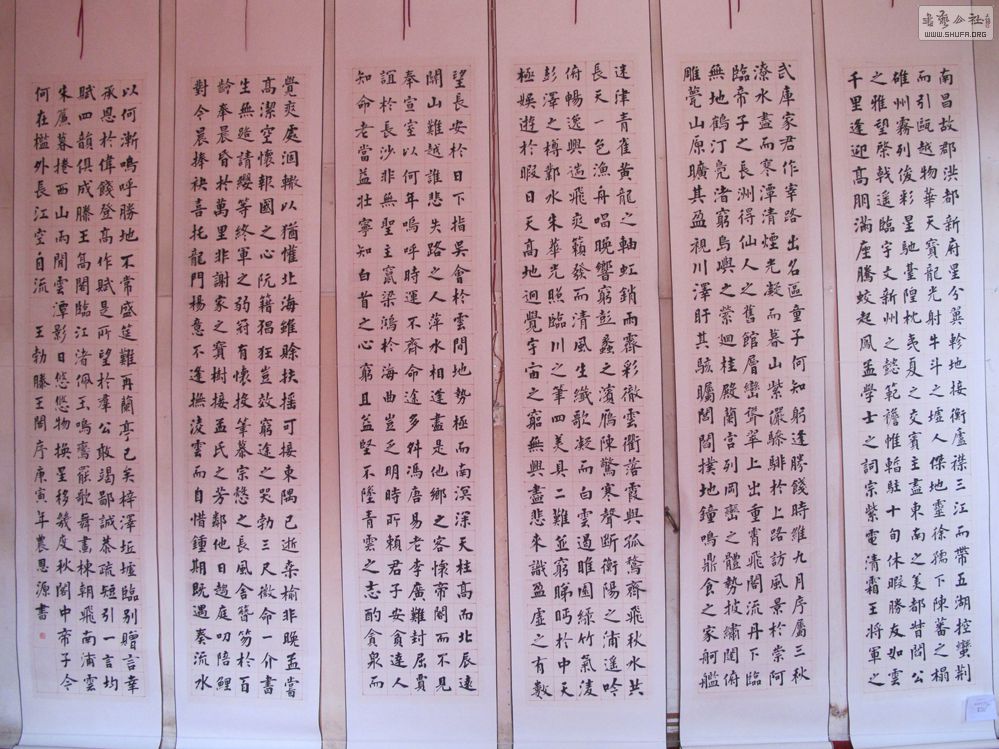 南昌故郡洪都新府星分翼軫地接衡廬襟三江而帶五湖控蠻荊
而引甌越物華天寶龍光射牛斗之墟人傑地靈徐孺下陳蕃之榻
雄州霧列俊彩星馳臺隍枕夷夏之交賓主盡東南之美都督閻公
之雅望棨戟遙臨宇文新州之懿範襜帷暫駐十旬休暇勝友如雲
千里逢迎高朋滿座騰蛟起鳳孟學士之詞宗紫電清霜王將軍之
武庫家君作宰路出名區童子何知躬逢勝餞時維九月序屬三秋
潦水盡而寒潭清煙光凝而暮山紫儼驂騑於上路訪風景於崇阿
臨帝子之長洲得仙人之舊館層巒聳翠上出重霄飛閣流丹下臨
無地鶴汀鳧渚窮島嶼之縈迴桂殿蘭宮列岡巒之體勢披繡闥俯
雕甍山原曠其盈視川澤盱其駭矚閭閻撲地鐘鳴鼎食之家舸艦
迷津青雀黃龍之軸虹銷雨霽彩徹雲衢落霞與孤鶩齊飛秋水共
長天一色漁舟唱晚響窮彭蠡之濱雁陳驚寒聲斷衡陽之浦遙吟
俯暢逸興遄飛爽籟發而清風生纖歌凝而白雲遏睢園綠竹氣凌
彭澤之樽鄴水朱華光照臨川之筆四美具二難並窮睇眄於中天
極娛遊於暇日天高地迥覺宇宙之窮無興盡悲來識盈虛之有數
望長安於日下指吳會於雲間地勢極而南溟深天柱高而北辰遠
關山難越誰悲失路之人萍水相逢盡是他鄉之客懷帝閽而不見
奉宣室以何年嗚呼時運不齊命途多舛馮唐易老李廣難封屈賈
誼於長沙非無聖主竄梁鴻於海曲豈乏明時所賴君子安貧達人
知命老當益壯寧知白首之心窮且益堅不墜青雲之志酌貪泉而
覺爽處涸轍以猶懽北海雖賒扶搖可接東隅已逝桑榆非晚孟嘗
高潔空懷報國之心阮籍猖狂豈效窮途之哭勃三尺微命一介書
生無路請纓等終軍之弱冠有懷投筆慕宗愨之長風舍簪笏於百
齡奉晨昏於萬里非謝家之寶樹接孟氏之芳鄰他日趨庭叨陪鯉
對今晨捧袂喜托龍門楊意不逢撫凌雲而自惜鍾期既遇奏流水
以何漸嗚呼勝地不常盛筵難再蘭亭已矣梓澤坵墟臨別贈言幸
承恩於偉餞登高作賦是所望於羣公敢竭鄙誠恭疏短引一言均
賦四韻俱成滕王高閣臨江渚佩玉鳴鸞罷歌舞畫棟朝飛南浦雲
朱簾暮捲西山雨閒雲潭影日悠悠物換星移幾度秋閣中帝子今
何在檻外長江空自流 王勃滕王閣序庚寅年農恩源書
WWW.SHUFA.ORG